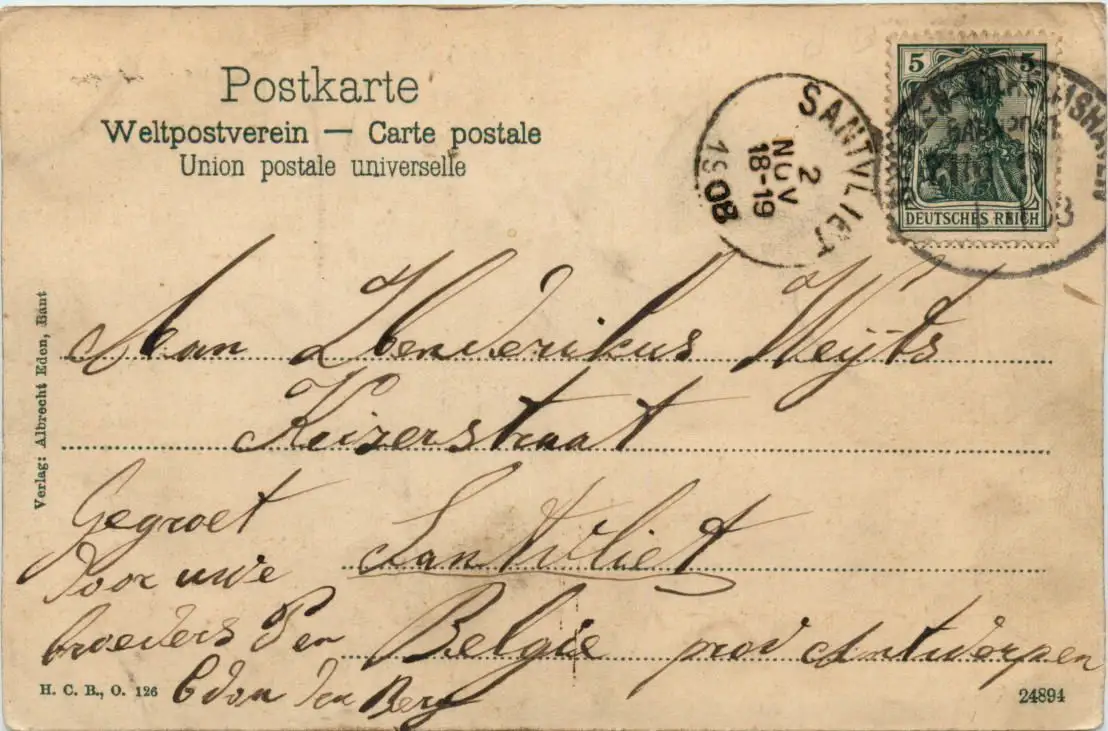 Postkarte
Weltpostverein — Carte postale
Union postale universelle
SANTVLIET
2
NOV
18-19
1908
5 5
DEUTSCHES REICH
Verlag: Albrecht Eden, Bant
Aan Henderikus Weÿts
Keizerstraat
Santvliet
Belgie prov Antwerpen
Gegroet
Door uwe
broeders P en
den Berg
H. C. B., O. 126
24894